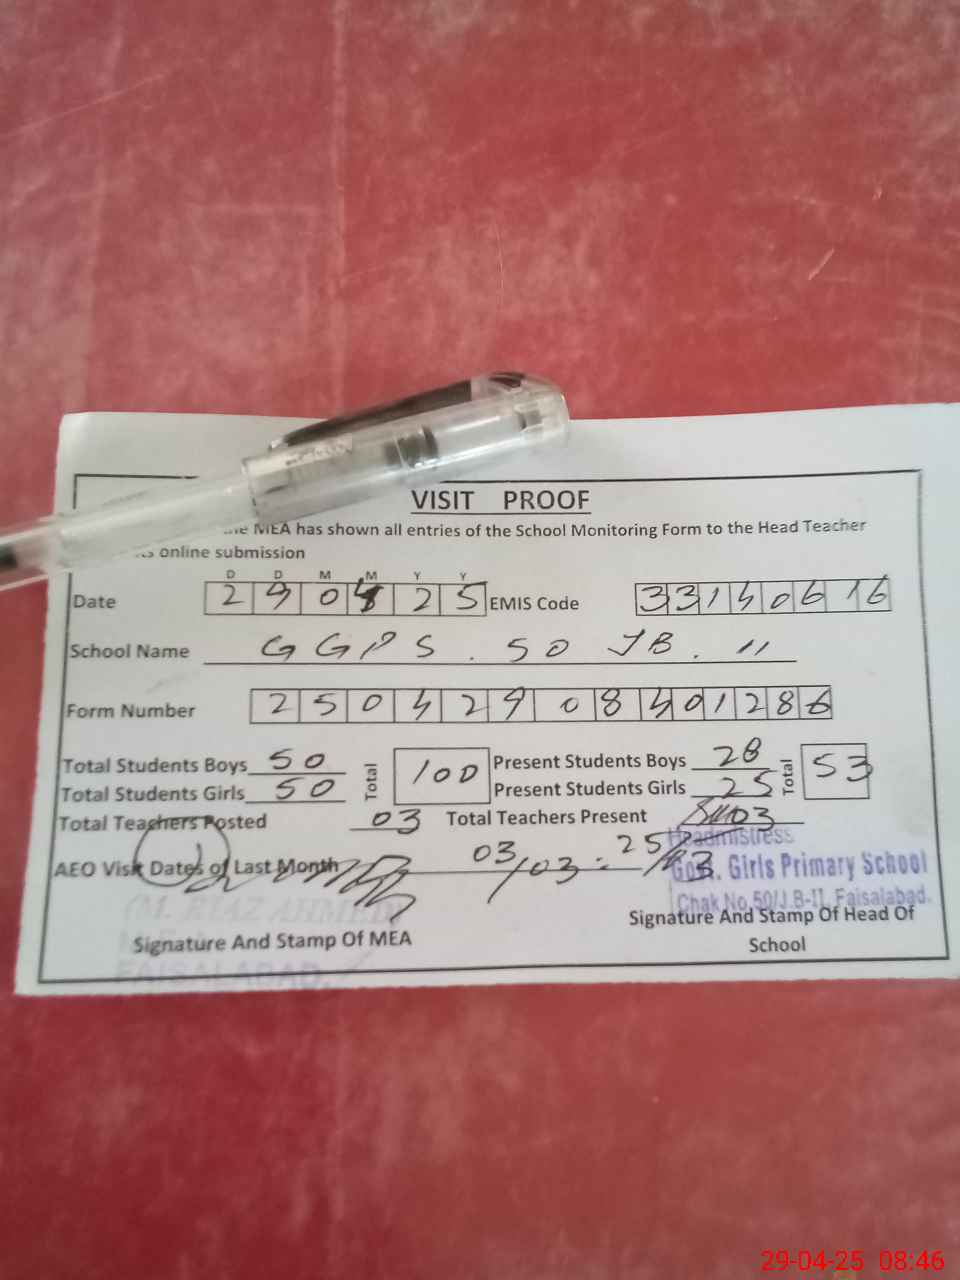 VISIT PROOF
MEA has shown all entries of the School Monitoring Form to the Head Teacher
online submission
D D M M Y Y
Date 290425 EMIS Code 33140616
School Name GGPS. 50 JB. II
Form Number 25042908401286
Total Students Boys 50 Total 100 Present Students Boys 28 Total 53
Total Students Girls 50 Present Students Girls 25
Total Teachers Posted 03 Total Teachers Present 03
AEO Visit Dates of Last Month 03/03
Headmistress
Govt. Girls Primary School
Chak No.50/J.B-II, Faisalabad.
(M. RIAZ AHMED)
Signature And Stamp Of MEA
FAISALABAD.
Signature And Stamp Of Head Of
School
29-04-25 08:46